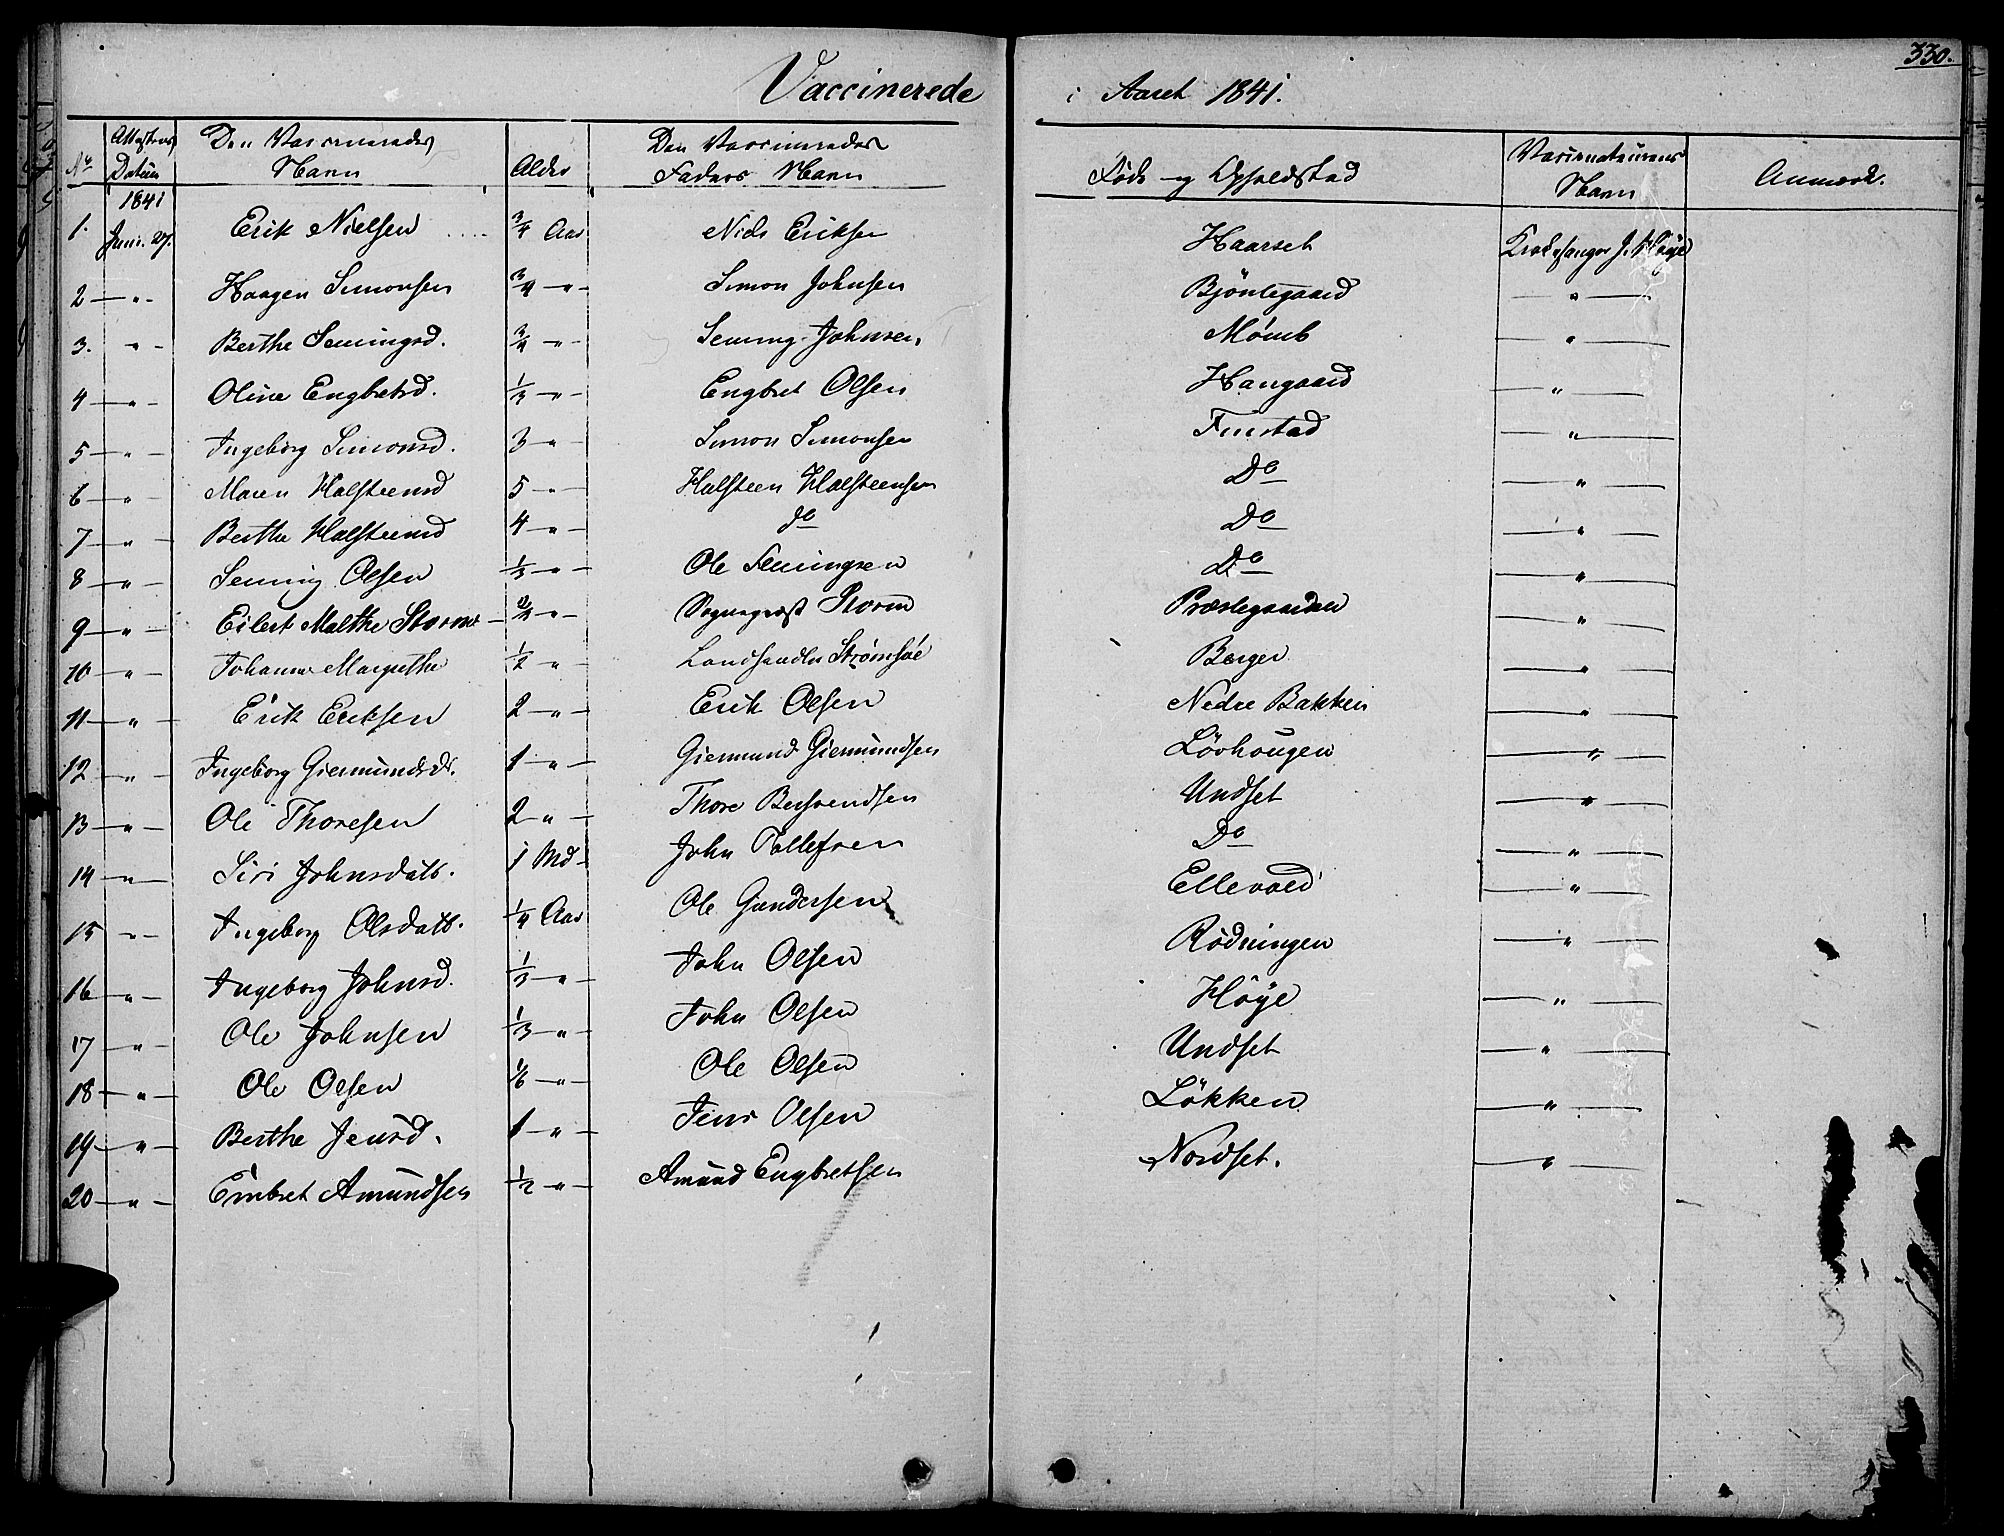 330.
Vaccinerede i Aaret 1841.
No Attestens Datum Den Vaccineredes Navn Alder Den Vaccineredes Faders Navn Føde- og Opholdsted Vaccinateurens Navn Anmærk.
1841
1. Juni 27. Erik Nielsen .... 3/4 Aar Niels Eriksen Haarset Kirkesanger J. Høye
2 — " - Haagen Simonsen 3/4 — " — Simon Johnsen Bjöntegaard — " —
3. " - Berthe Semingsd. 3/4 — " — Seming Johnsen Mömb — " —
4 — " — Oline Engbretsd. 1/3 — " — Engbret Olsen Haugaard — " —
5 — " — Ingeborg Simonsd. 3 — " — Simon Simonsen Finstad — " —
6 — " — Maren Halsteensd 5 — " — Halsteen Halsteensen Do — " —
7 — " — Berthe Halsteensd 4 — " — do Do — " —
8 — " — Seming Olsen 1/3 — " — Ole Semingsen Do — " —
9 — " — Eilert Malthe Storm — " — Sognepræst Storm Præstegaarden — " —
10 — " — Johanne Margrethe 1/2 — " — Landhandler Strömsöe Berger — " —
11 — " — Erik Eriksen 2 — " — Erik Olsen Nedre Bakken — " —
12 — " — Ingeborg Giermundsdr. 1 — " — Giermund Giermundsen Lövhougen — " —
13 — " — Ole Thoresen 2 — " — Thore Berhendsen Undset — " —
14 — " — Siri Johnsdatt. 1 Md - John Tollefsen Do — " —
15 — " — Ingeborg Olsdatt. 1/4 Aar Ole Gundersen Ellevold — " —
16 — " — Ingeborg Johnsd. 1/3 — " — John Olsen Rödningen — " —
17 — " — Ole Johnsen 1/3 — " — John Olsen Höye — " —
18 — " — Ole Olsen 1/6 — " — Ole Olsen Undset — " —
19 — " — Berthe Jensd. 1 — " — Jens Olsen Lökken — " —
20 — " — Embret Amundsen 1/2 — " — Amund Engbretsen Nordset. — " —